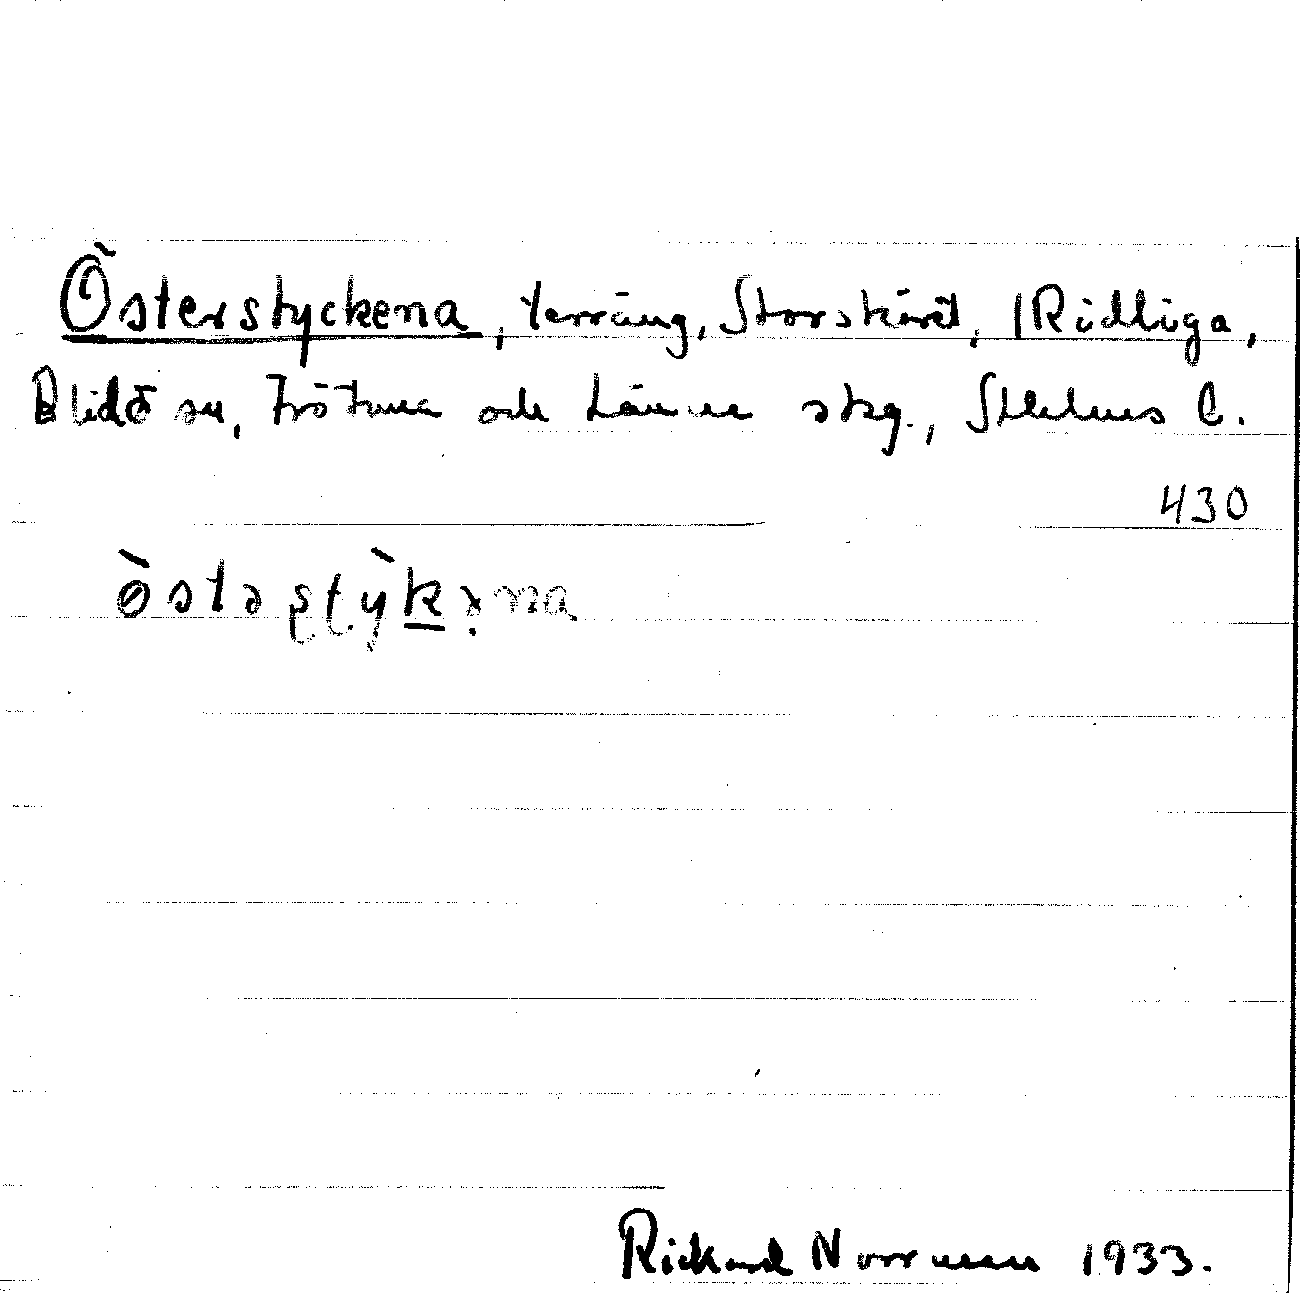 Österstyckena, terräng, Storskäret, Rödlöga,
Blidö sn, Frötuna och Länna skg., Sthlms l.
430
Rickard Norrman 1933.